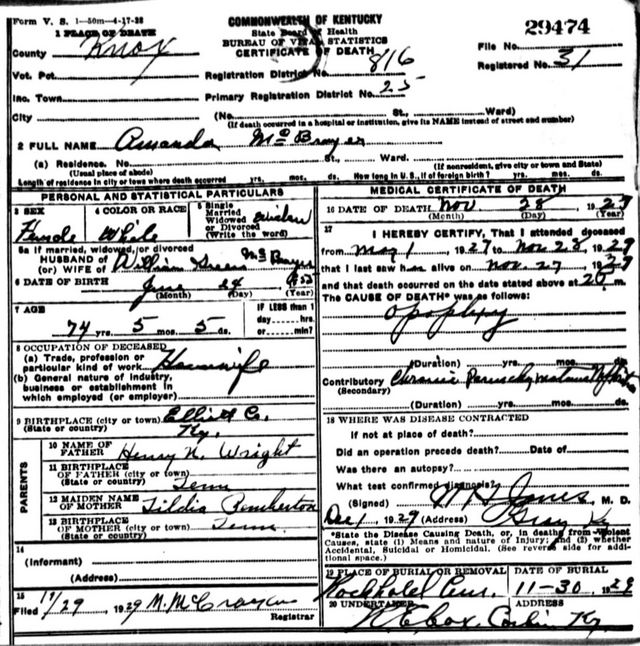 Form V. S. 1—50m—4-17-28
COMMONWEALTH OF KENTUCKY
State Board of Health
BUREAU OF VITAL STATISTICS
CERTIFICATE OF DEATH
29474
File No.
Registered No. 31
1 PLACE OF DEATH
County Knox
Vot. Pct.
Registration District No. 816
Inc. Town
Primary Registration District No. 25
City (No. St., Ward)
(If death occurred in a hospital or institution, give its NAME instead of street and number)
2 FULL NAME Amanda Mc Brayer
(a) Residence. No. St., Ward.
(Usual place of abode) (If nonresident, give city or town and State)
Length of residence in city or town where death occurred yrs. mos. ds. How long in U.S., if of foreign birth? yrs. mos. ds.
PERSONAL AND STATISTICAL PARTICULARS
3 SEX
Female
4 COLOR OR RACE
White
5 Single
Married
Widowed
or Divorced
(Write the word)
5a If married, widowed, or divorced
HUSBAND OF
(or) WIFE OF William Green Mc Brayer
6 DATE OF BIRTH June 24
(Month) (Day) (Year)
7 AGE
74 yrs. 5 mos. 5 ds.
IF LESS than 1
day---hrs.
or---min.?
8 OCCUPATION OF DECEASED
(a) Trade, profession or
particular kind of work Housewife
(b) General nature of industry,
business or establishment in
which employed (or employer)
9 BIRTHPLACE (city or town) Elliott Co.
(State or country) Ky.
PARENTS
10 NAME OF
FATHER Henry N. Wright
11 BIRTHPLACE
OF FATHER (city or town)
(State or country) Tenn
12 MAIDEN NAME
OF MOTHER Tildia Pemberton
13 BIRTHPLACE
OF MOTHER (city or town)
(State or country) Tenn.
14
(Informant)
(Address)
15
Filed 11/29 1929
Registrar
MEDICAL CERTIFICATE OF DEATH
16 DATE OF DEATH Nov 28 1929
(Month) (Day) (Year)
17
I HEREBY CERTIFY, That I attended deceased
from May 1 1927 to Nov 28, 1929
that I last saw her alive on Nov. 27 1929
and that death occurred on the date stated above at m.
The CAUSE OF DEATH* was as follows:
apoplexy
(Duration) yrs. mos. ds.
Contributory Chronic
(Secondary)
(Duration) yrs. mos. ds.
18 WHERE WAS DISEASE CONTRACTED
if not at place of death?
Did an operation precede death? Date of
Was there an autopsy?
What test confirmed diagnosis?
(Signed) Jones, M. D.
Dec 1 1929 (Address) Gray Ky
*State the Disease Causing Death, or, in deaths from Violent
Causes, state (1) Means and nature of Injury; and (2) whether
Accidental, Suicidal or Homicidal. (See reverse side for addi-
tional space.)
19 PLACE OF BURIAL OR REMOVAL
Rockholds Cem.
DATE OF BURIAL
11-30 1929
20 UNDERTAKER
Cox,
ADDRESS
Corbin Ky